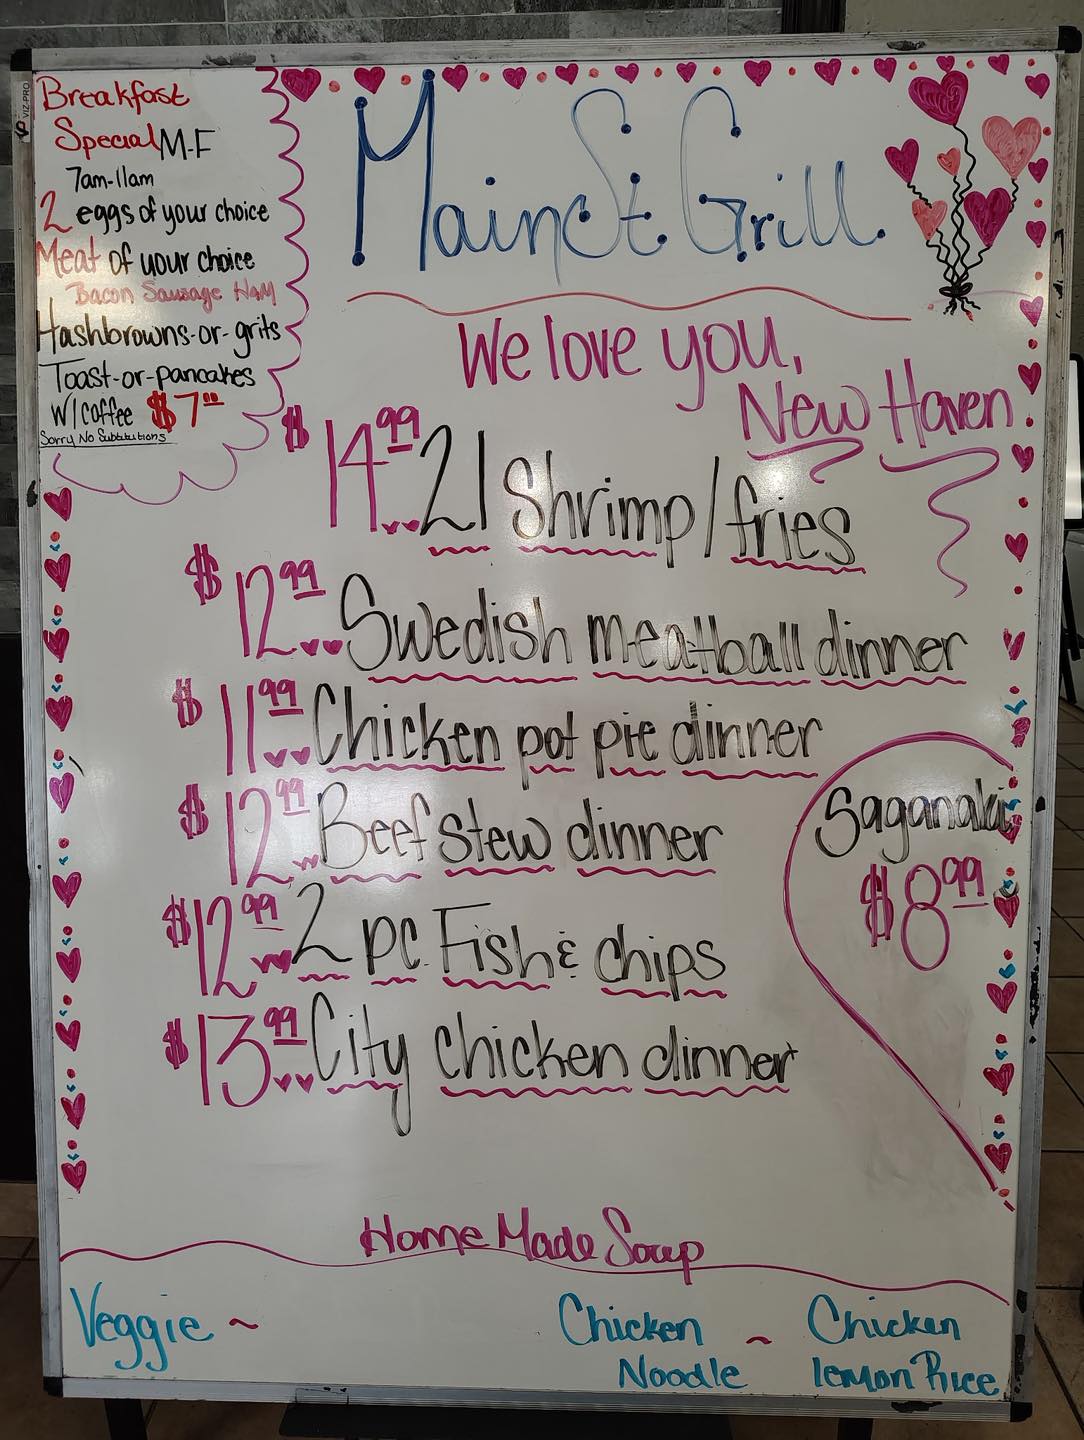 VIZ-PRO
Breakfast
Special M-F
7am-11am
2 eggs of your choice
Meat of your choice
Bacon Sausage HAM
Hashbrowns-or-grits
Toast-or-pancakes
w/coffee $7.00
Sorry No Substitutions
Main St. Grill.
We love you,
New Haven
$14.99 21 Shrimp/fries
$12.99 Swedish meatball dinner
$11.99 Chicken pot pie dinner
$12.99 Beef stew dinner
$12.99 2 pc Fish & chips
$13.99 City chicken dinner
Saganaki
$8.99
Home Made Soup
Veggie ~ Chicken Noodle ~ Chicken lemon Rice